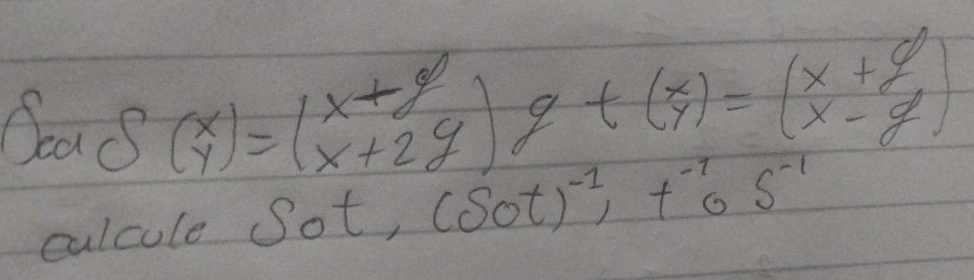 Sea S (x y) = (x + y x + 2y) y t (x y) = (x + y x - y)
calcule Sot, (Sot)⁻¹, t⁻¹o S⁻¹